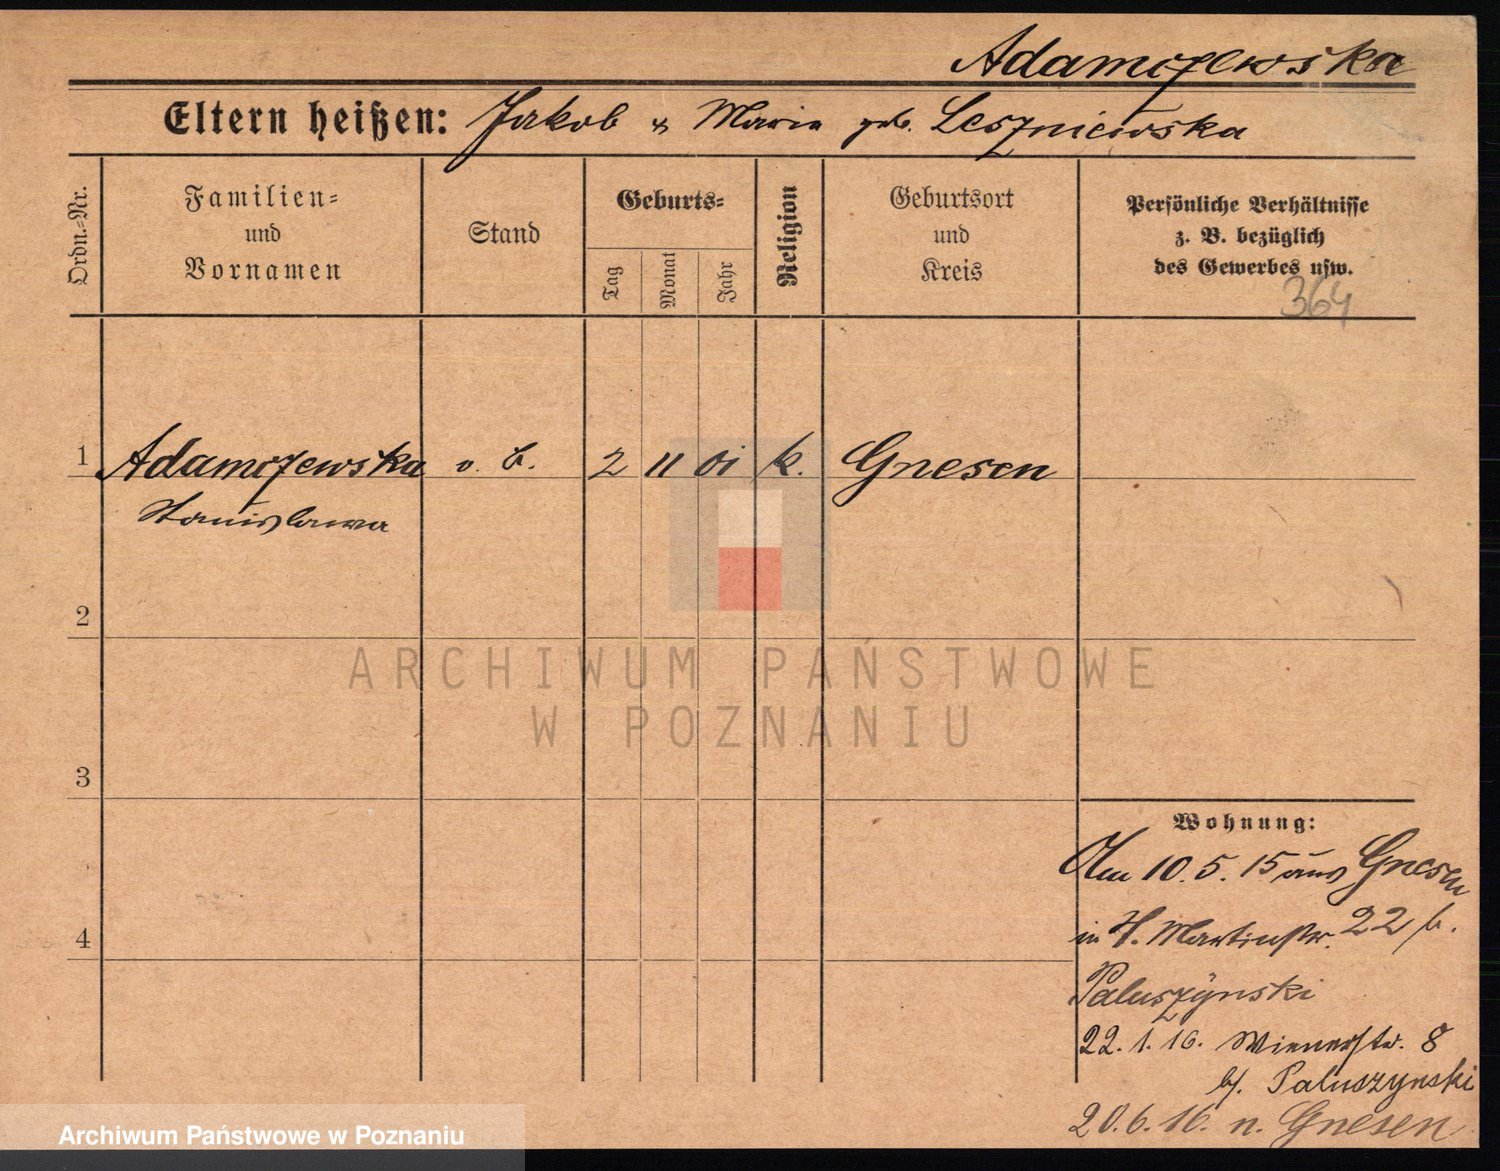 Adamczewska
Eltern heißen: Jakob u Maria geb. Leszniewska
Ordn.=Nr.
Familien=
und
Vornamen
Stand
Geburts=
Tag
Monat
Jahr
Religion
Geburtsort
und
Kreis
Persönliche Verhältnisse
z. B. bezüglich
des Gewerbes usw.
364
1 Adamczewska o. B. 2 11 01 k. Gnesen
Stanislawa
2
3
4
ARCHIWUM PAŃSTWOWE
W POZNANIU
Wohnung:
Am 10. 5. 15 aus Gnesen
in St. Martinstr. 22 b.
Paluszynski
22. 1. 16. Wienerstr. 8
b/. Paluszynski
20. 6. 16. n. Gnesen
Archiwum Państwowe w Poznaniu